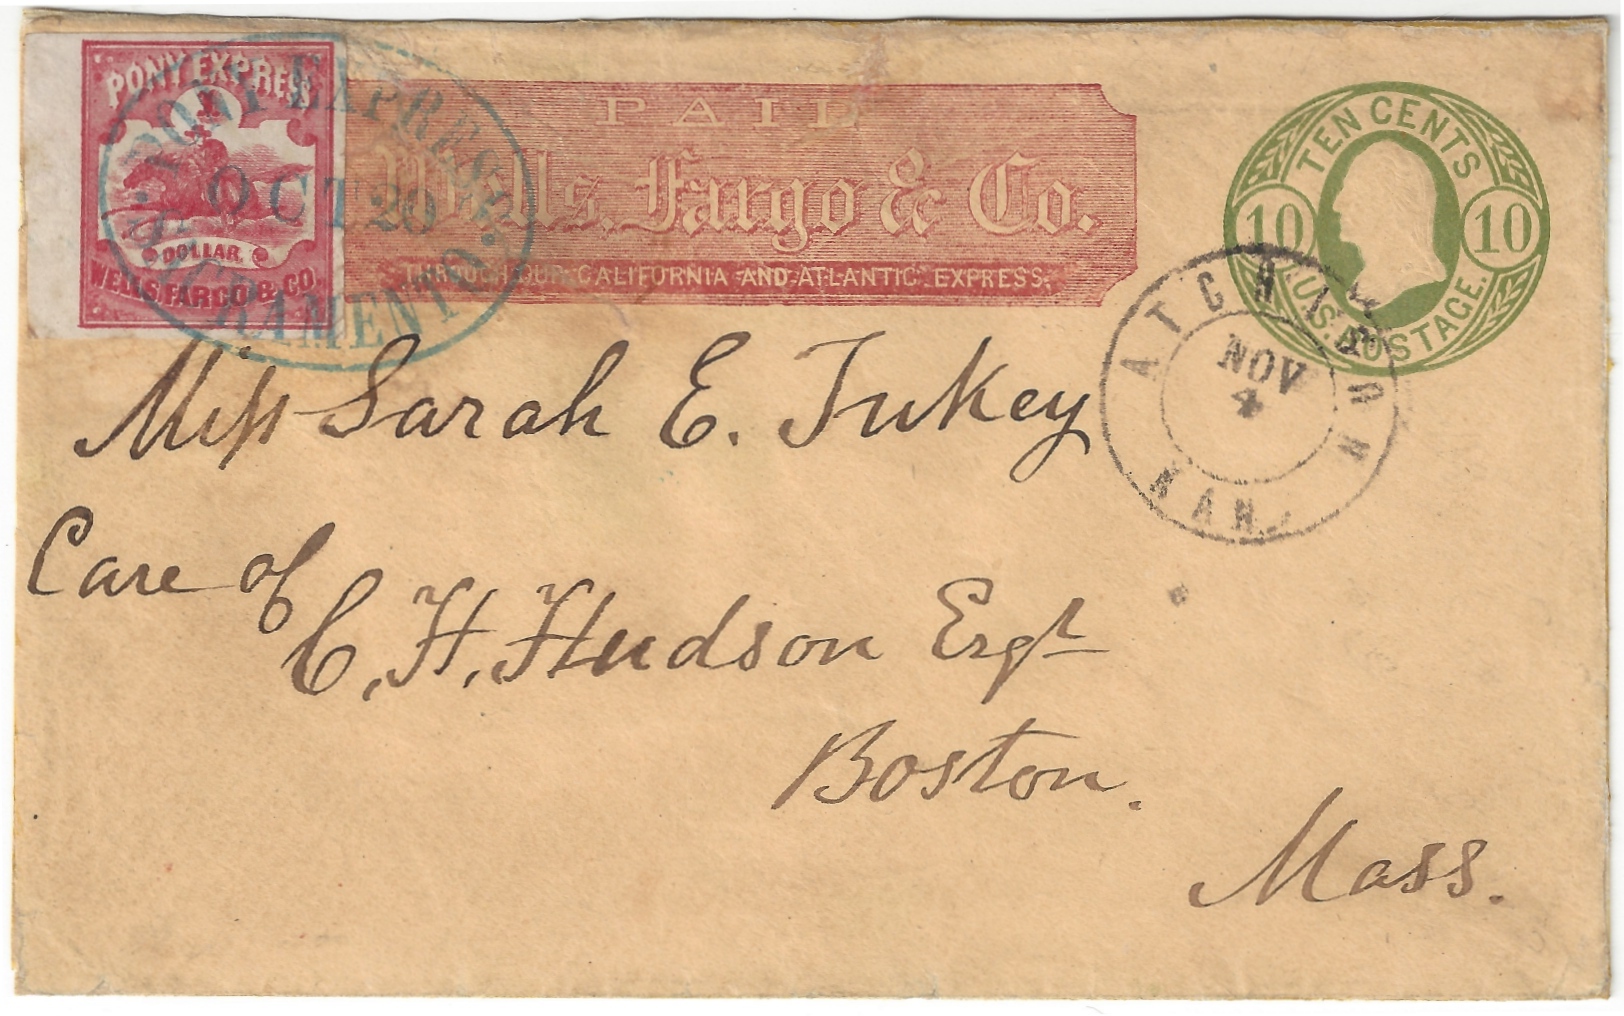 PONY EXPRESS
1
DOLLAR.
WELLS, FARGO & CO.
PONY EXPRESS.
OCT 20
SACRAMENTO.
PAID
Wells, Fargo & Co.
THROUGH OUR CALIFORNIA AND ATLANTIC EXPRESS.
TEN CENTS
10 10
U.S. POSTAGE.
ATCHISON
NOV
4
KAN.
Miss Sarah E. Tukey
Care of
C. H. Hudson Esqr
Boston.
Mass.